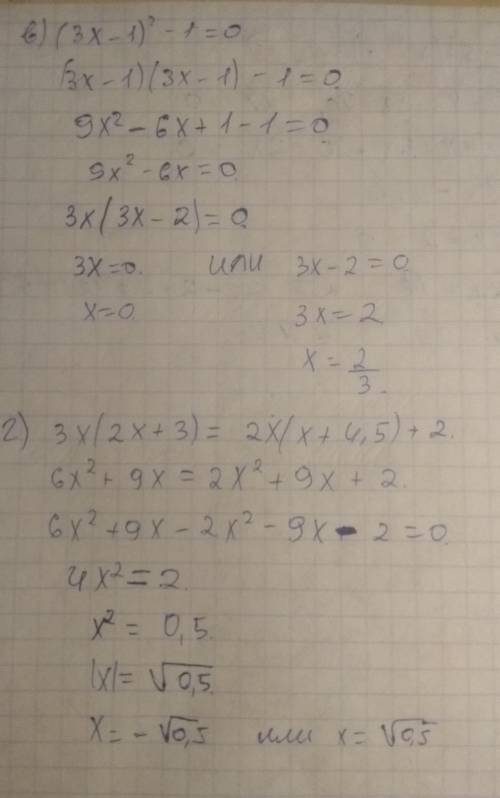 в) (3x-1)² - 1 = 0
(3x-1)(3x-1) - 1 = 0.
9x² - 6x + 1 - 1 = 0
9x² - 6x = 0.
3x(3x-2) = 0.
3x = 0. или 3x - 2 = 0.
x = 0. 3x = 2
x = 2/3.
г) 3x(2x+3) = 2x(x+4,5) + 2.
6x² + 9x = 2x² + 9x + 2.
6x² + 9x - 2x² - 9x - 2 = 0.
4x² = 2.
x² = 0,5.
|x| = √0,5.
x = -√0,5 или x = √0,5